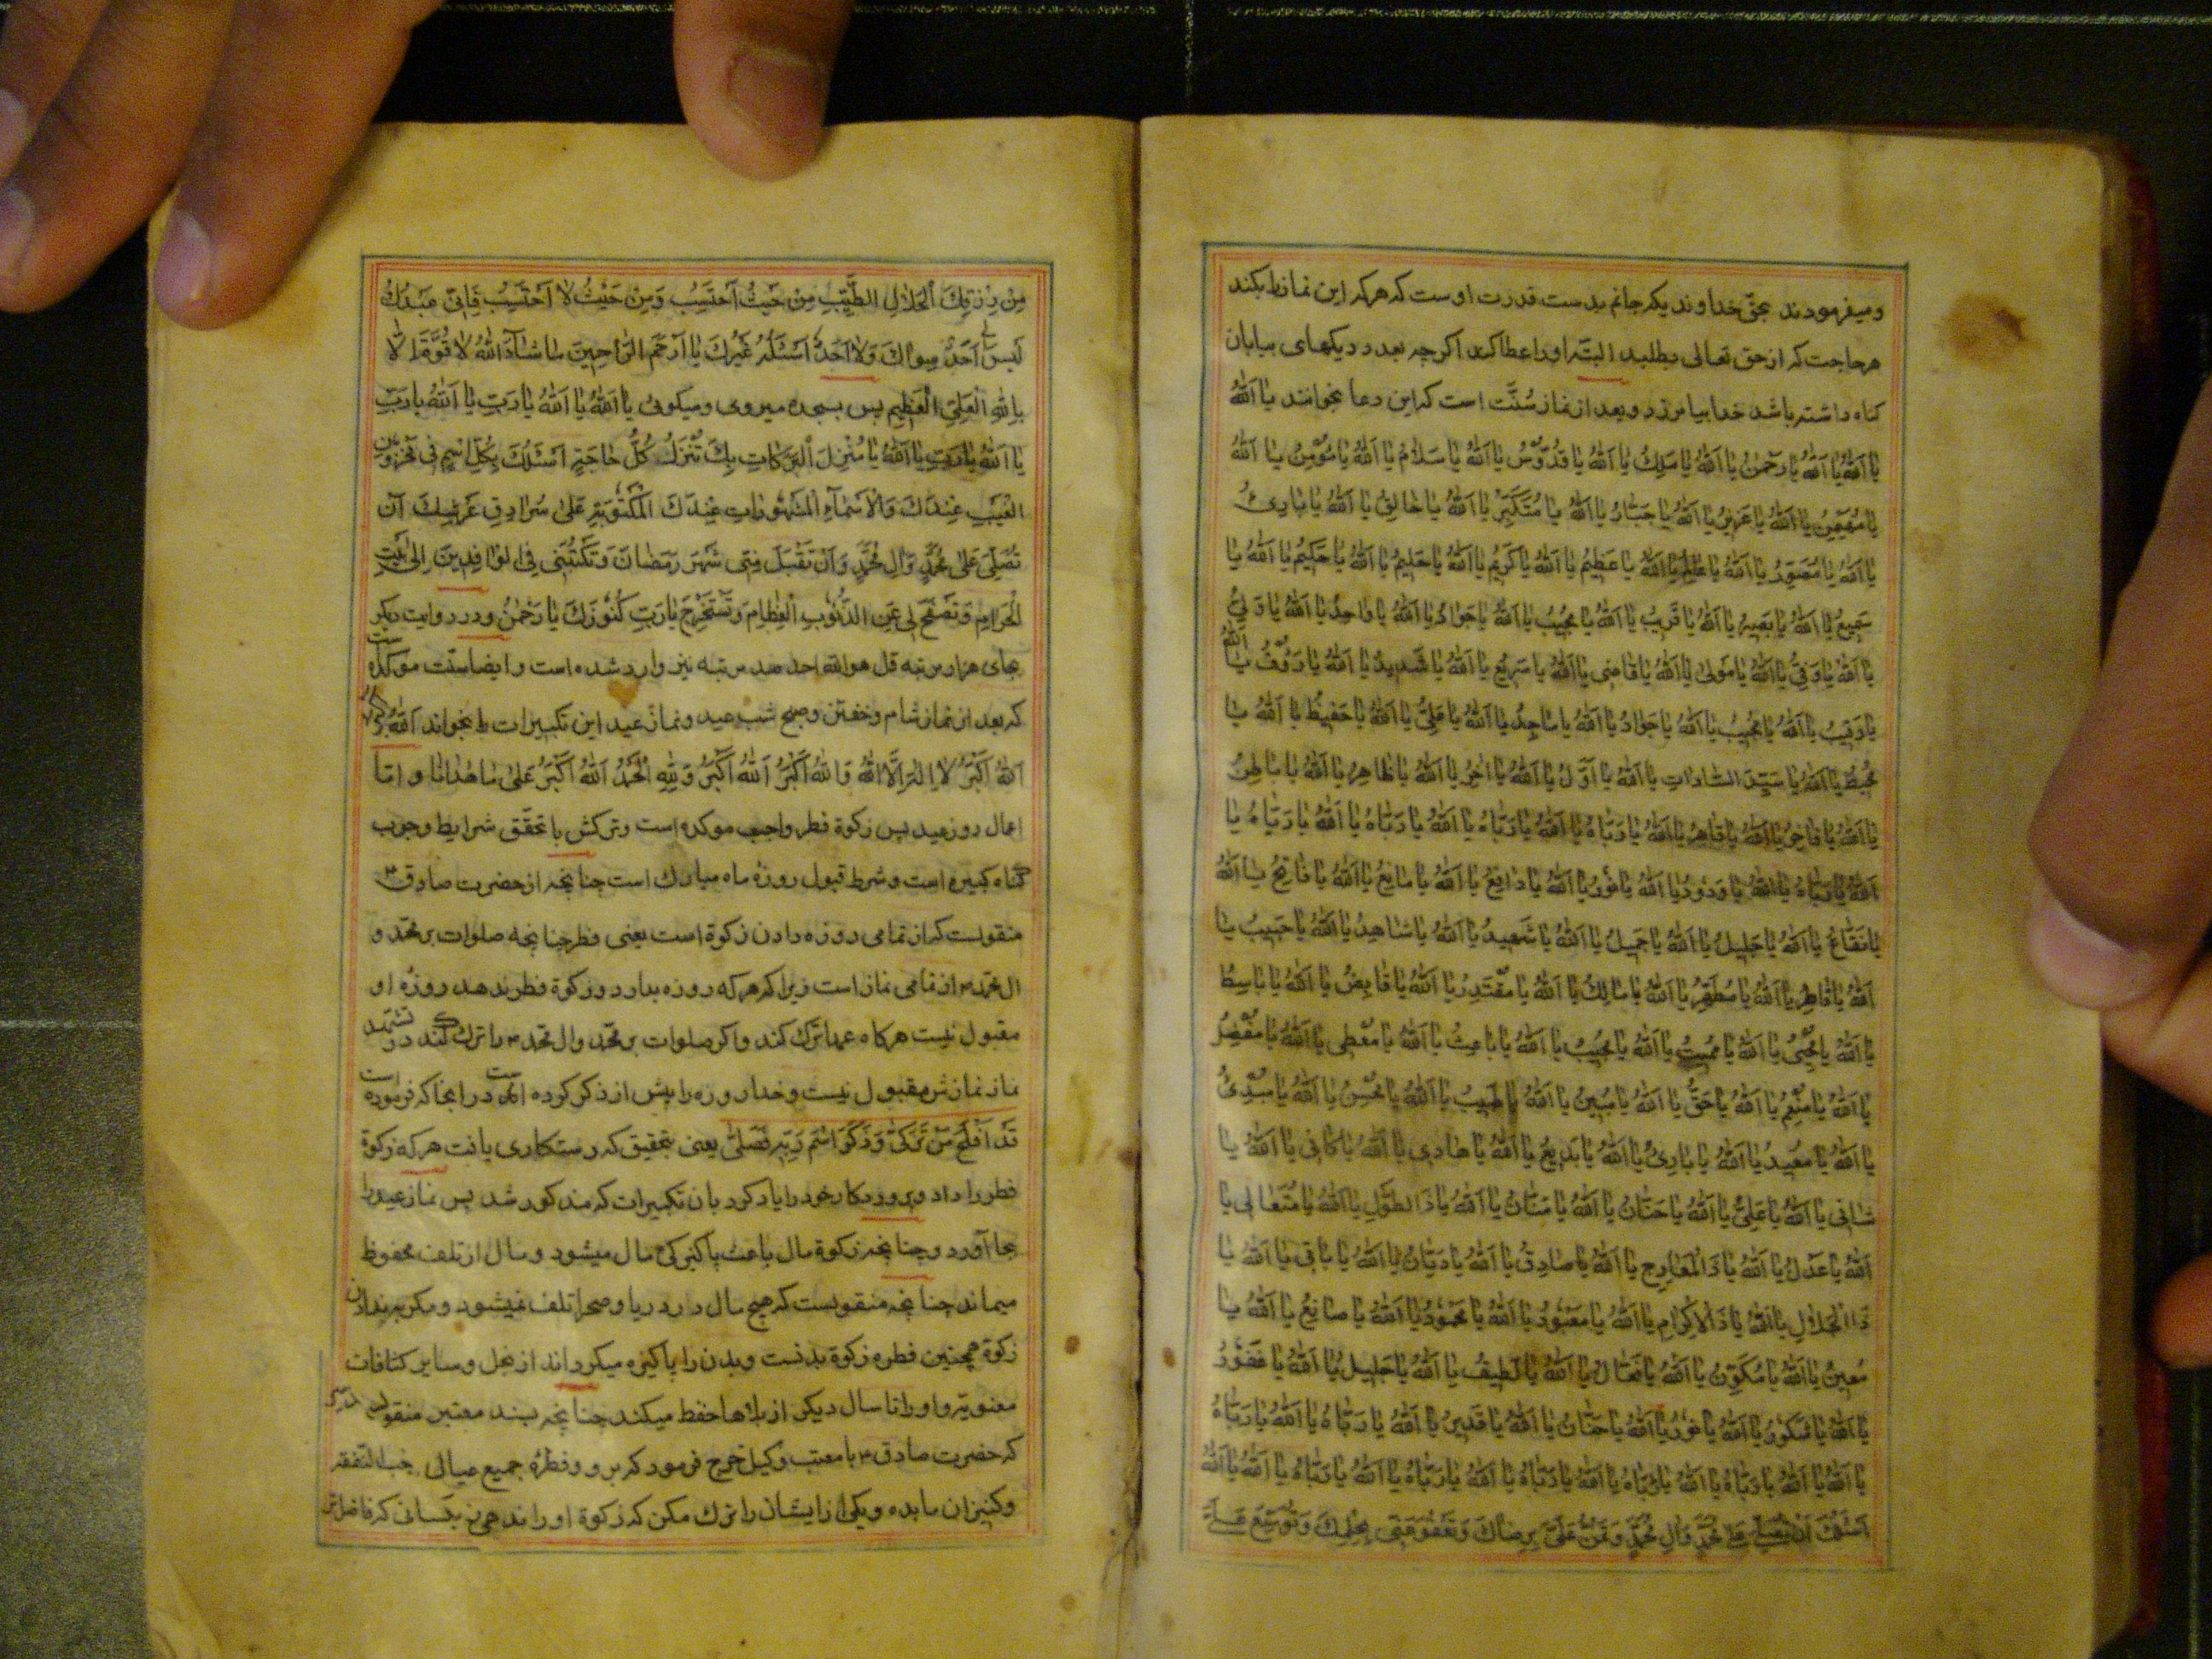 ومیفرمودند بحقّ خداوندیکه جانم بدست قدرت اوست که هرکه این نماز را بکند
هرحاجت که ازحق تعالی بطلبد البتّه اورا عطا کند اکرچه بعدد ریکهای بیابان
کناه داشته باشد خدا بیامرزد و بعد از نماز سُنَّت است که این دعا بخوانند یا اَللّٰهُ
یا اَللّٰهُ یا اَللّٰهُ یا رَحْمٰنُ یا اَللّٰهُ یا مَلِكُ یا اَللّٰهُ یا قُدُّوسُ یا اَللّٰهُ یا سَلامُ یا اَللّٰهُ یا مُؤْمِنُ یا اَللّٰهُ
یا مُهَیْمِنُ یا اَللّٰهُ یا عَزیزُ یا اَللّٰهُ یا جَبّارُ یا اَللّٰهُ یا مُتَكَبِّرُ یا اَللّٰهُ یا خالِقُ یا اَللّٰهُ یا بارِئُ
یا اَللّٰهُ یا مُصَوِّرُ یا اَللّٰهُ یا عالِمُ یا اَللّٰهُ یا عَظیمُ یا اَللّٰهُ یا كَریمُ یا اَللّٰهُ یا حَلیمُ یا اَللّٰهُ یا حَكیمُ یا اَللّٰهُ یا
سَمیعُ یا اَللّٰهُ یا بَصیرُ یا اَللّٰهُ یا قَریبُ یا اَللّٰهُ یا مُجیبُ یا اَللّٰهُ یا جَوادُ یا اَللّٰهُ یا واحِدُ یا اَللّٰهُ یا وَلِیُّ
یا اَللّٰهُ یا وَفِیُّ یا اَللّٰهُ یا مَولیٰ یا اَللّٰهُ یا قاضی یا اَللّٰهُ یا سَریعُ یا اَللّٰهُ یا شَدیدُ یا اَللّٰهُ یا رَؤُفُ یا اَللّٰهُ
یا رَقیبُ یا اَللّٰهُ یا مُجیبُ یا اَللّٰهُ یا جَوادُ یا اَللّٰهُ یا ماجِدُ یا اَللّٰهُ یا عَلِیُّ یا اَللّٰهُ یا حَفیظُ یا اَللّٰهُ یا
مُحیطُ یا اَللّٰهُ یا سَیِّدَ السّاداتِ یا اَللّٰهُ یا اَوَّلُ یا اَللّٰهُ یا اٰخِرُ یا اَللّٰهُ یا ظاهِرُ یا اَللّٰهُ یا باطِنُ
یا اَللّٰهُ یا فاخِرُ یا اَللّٰهُ یا قاهِرُ یا اَللّٰهُ یا رَبّاهُ یا اَللّٰهُ یا رَبّاهُ یا اَللّٰهُ یا رَبّاهُ یا اَللّٰهُ یا رَبّاهُ یا
اَللّٰهُ یا رَبّاهُ یا اَللّٰهُ یا وَدُودُ یا اَللّٰهُ یا نُورُ یا اَللّٰهُ یا دافِعُ یا اَللّٰهُ یا مانِعُ یا اَللّٰهُ یا فاتِحُ یا اَللّٰهُ
یا نَفّاعُ یا اَللّٰهُ یا جَلیلُ یا اَللّٰهُ یا جَمیلُ یا اَللّٰهُ یا شَهیدُ یا اَللّٰهُ یا شاهِدُ یا اَللّٰهُ یا حَبیبُ یا
اَللّٰهُ یا فاطِرُ یا اَللّٰهُ یا مُطَهِّرُ یا اَللّٰهُ یا مالِكُ یا اَللّٰهُ یا مُقْتَدِرُ یا اَللّٰهُ یا قابِضُ یا اَللّٰهُ یا باسِطُ
یا اَللّٰهُ یا مُحْیی یا اَللّٰهُ یا مُمیتُ یا اَللّٰهُ یا مُجیبُ یا اَللّٰهُ یا باعِثُ یا اَللّٰهُ یا مُعْطی یا اَللّٰهُ یا مُفْضِلُ
یا اَللّٰهُ یا مُنْعِمُ یا اَللّٰهُ یا حَقُّ یا اَللّٰهُ یا مُبینُ یا اَللّٰهُ یا طَبیبُ یا اَللّٰهُ یا مُحْسِنُ یا اَللّٰهُ یا مُبْدِئُ
یا اَللّٰهُ یا مُعیدُ یا اَللّٰهُ یا بارِئُ یا اَللّٰهُ یا بَدیعُ یا اَللّٰهُ یا هادی یا اَللّٰهُ یا كافی یا اَللّٰهُ یا
شافی یا اَللّٰهُ یا عَلِیُّ یا اَللّٰهُ یا حَنّانُ یا اَللّٰهُ یا مَنّانُ یا اَللّٰهُ یا ذَا الطَّوْلِ یا اَللّٰهُ یا مُتَعالی یا
اَللّٰهُ یا عَدْلُ یا اَللّٰهُ یا ذَا الْمَعارِجِ یا اَللّٰهُ یا صادِقُ یا اَللّٰهُ یا دَیّانُ یا اَللّٰهُ یا باقی یا اَللّٰهُ یا
ذَا الْجَلالِ یا اَللّٰهُ یا ذَا الْاِكْرامِ یا اَللّٰهُ یا مَعْبُودُ یا اَللّٰهُ یا مَحْمُودُ یا اَللّٰهُ یا صانِعُ یا اَللّٰهُ یا
مُعینُ یا اَللّٰهُ یا مُكَوِّنُ یا اَللّٰهُ یا فَعّالُ یا اَللّٰهُ یا لَطیفُ یا اَللّٰهُ یا جَلیلُ یا اَللّٰهُ یا غَفُورُ
یا اَللّٰهُ یا شَكُورُ یا اَللّٰهُ یا نُورُ یا اَللّٰهُ یا حَنّانُ یا اَللّٰهُ یا قَدیرُ یا اَللّٰهُ یا رَبّاهُ یا اَللّٰهُ یا رَبّاهُ
یا اَللّٰهُ یا اَللّٰهُ یا رَبّاهُ یا اَللّٰهُ یا رَبّاهُ یا اَللّٰهُ یا رَبّاهُ یا اَللّٰهُ یا رَبّاهُ یا اَللّٰهُ یا رَبّاهُ یا اَللّٰهُ یا اَللّٰهُ
اَسْئَلُكَ اَنْ تُصَلِّیَ عَلیٰ مُحَمَّدٍ وَالِ مُحَمَّدٍ وَتَمُنَّ عَلَیَّ بِرِضاكَ وَتَعْفُوَ عَنّی بِحِلْمِكَ وَتُوَسِّعَ عَلَیَّ
مِنْ رِزْقِكَ الْحَلالِ الطَّیِّبِ مِنْ حَیْثُ اَحْتَسِبُ وَمِنْ حَیْثُ لا اَحْتَسِبُ فَاِنّی عَبْدُكَ
لَیْسَ لی اَحَدٌ سِواكَ وَلا اَحَدٌ اَسْئَلُهُ غَیْرُكَ یا اَرْحَمَ الرّاحِمینَ ما شآءَ اللّٰهُ لا قُوَّةَ اِلّا
بِاللّٰهِ الْعَلِیِّ الْعَظیمِ پس بسجده میروی ومیکوئی یا اَللّٰهُ یا اَللّٰهُ یا رَبِّ یا اَللّٰهُ یا رَبِّ
یا اَللّٰهُ یا رَبِّ یا اَللّٰهُ یا مُنْزِلَ الْبَرَكاتِ بِكَ تُنْزَلُ كُلُّ حاجَةٍ اَسْئَلُكَ بِكُلِّ اسْمٍ فی مَخْزُونِ
الْغَیْبِ عِنْدَكَ وَالْاَسْمآءِ الْمَشْهُوراتِ عِنْدَكَ الْمَكْتُوبَةِ عَلیٰ سُرادِقِ عَرْشِكَ اَنْ
تُصَلِّیَ عَلیٰ مُحَمَّدٍ وَالِ مُحَمَّدٍ وَاَنْ تَقْبَلَ مِنّی شَهْرَ رَمَضانَ وَتَكْتُبَنی فِی الْوافِدینَ اِلیٰ بَیْتِكَ
الْحَرامِ وَتَصْفَحَ لی عَنِ الذُّنُوبِ الْعِظامِ وَتَسْتَخْرِجَ یا رَبِّ كُنُوزَكَ یا رَحْمٰنُ و در روایت دیکر
بجای هزار مرتبه قل هو الله احد صد مرتبه نیز وارد شده است و ایضا سنّت موکده ست
که بعد از نماز شام وخفتن وصبح شب عید ونماز عید این تکبیرات را بخواند اَللّٰهُ اَكْبَرُ
اَللّٰهُ اَكْبَرُ لا اِلٰهَ اِلَّا اللّٰهُ وَاللّٰهُ اَكْبَرُ اَللّٰهُ اَكْبَرُ وَلِلّٰهِ الْحَمْدُ اَللّٰهُ اَكْبَرُ عَلیٰ ما هَدانا و امّا
اعمال روز عید پس زکوة فطر واجب موکده است وترکش با تحقّق شرایط وجوب
کناه کبیره است وشرط قبول روزهٔ ماه مبارك است چنانچه از حضرت صادق ع
منقولست که از تمامی روزه دادن زکوة است یعنی فطر چنانچه صلوات بر محمّد و
ال محمّد ص از تمامی نماز است زیرا که هرکه روزه بدارد و زکوة فطر ندهد روزهٔ او
مقبول نیست هرکاه عمدا ترك کند واکر صلوات بر محمّد وال محمّد ص را ترك کند در تشهّد
نماز نمازش مقبول نیست وخدا روزه را پیش از ذکر کرده است در انجا که فرموده است
قَدْ اَفْلَحَ مَنْ تَزَكّیٰ وَذَكَرَ اسْمَ رَبِّهِ فَصَلّیٰ یعنی بتحقیق که رستکاری یافت هرکه زکوة
فطر را داد وپروردکار خود را یاد کرد بان تکبیرات که مذکور شد پس نماز عید را
بجا آورد و چنانچه زکوة مال باعث پاکیزکی مال میشود ومال از تلف محفوظ
میماند چنانچه منقولست که هیچ مال در دریا وصحرا تلف نمیشود ومکر به ندادن
زکوة همچنین فطره زکوة بدنست وبدن را پاکیزه میکرداند از بخل وسایر کثافات
معنویّه و اورا تا سال دیکر از بلاها حفظ میکند چنانچه بسند معتبر منقولست
که حضرت صادق ع با معتب وکیل خرج فرمود که برو وفطرهٔ جمیع عیال
وکنیزان ما بده ویکی از ایشان را ترك مکن که زکوة اورا ندهی